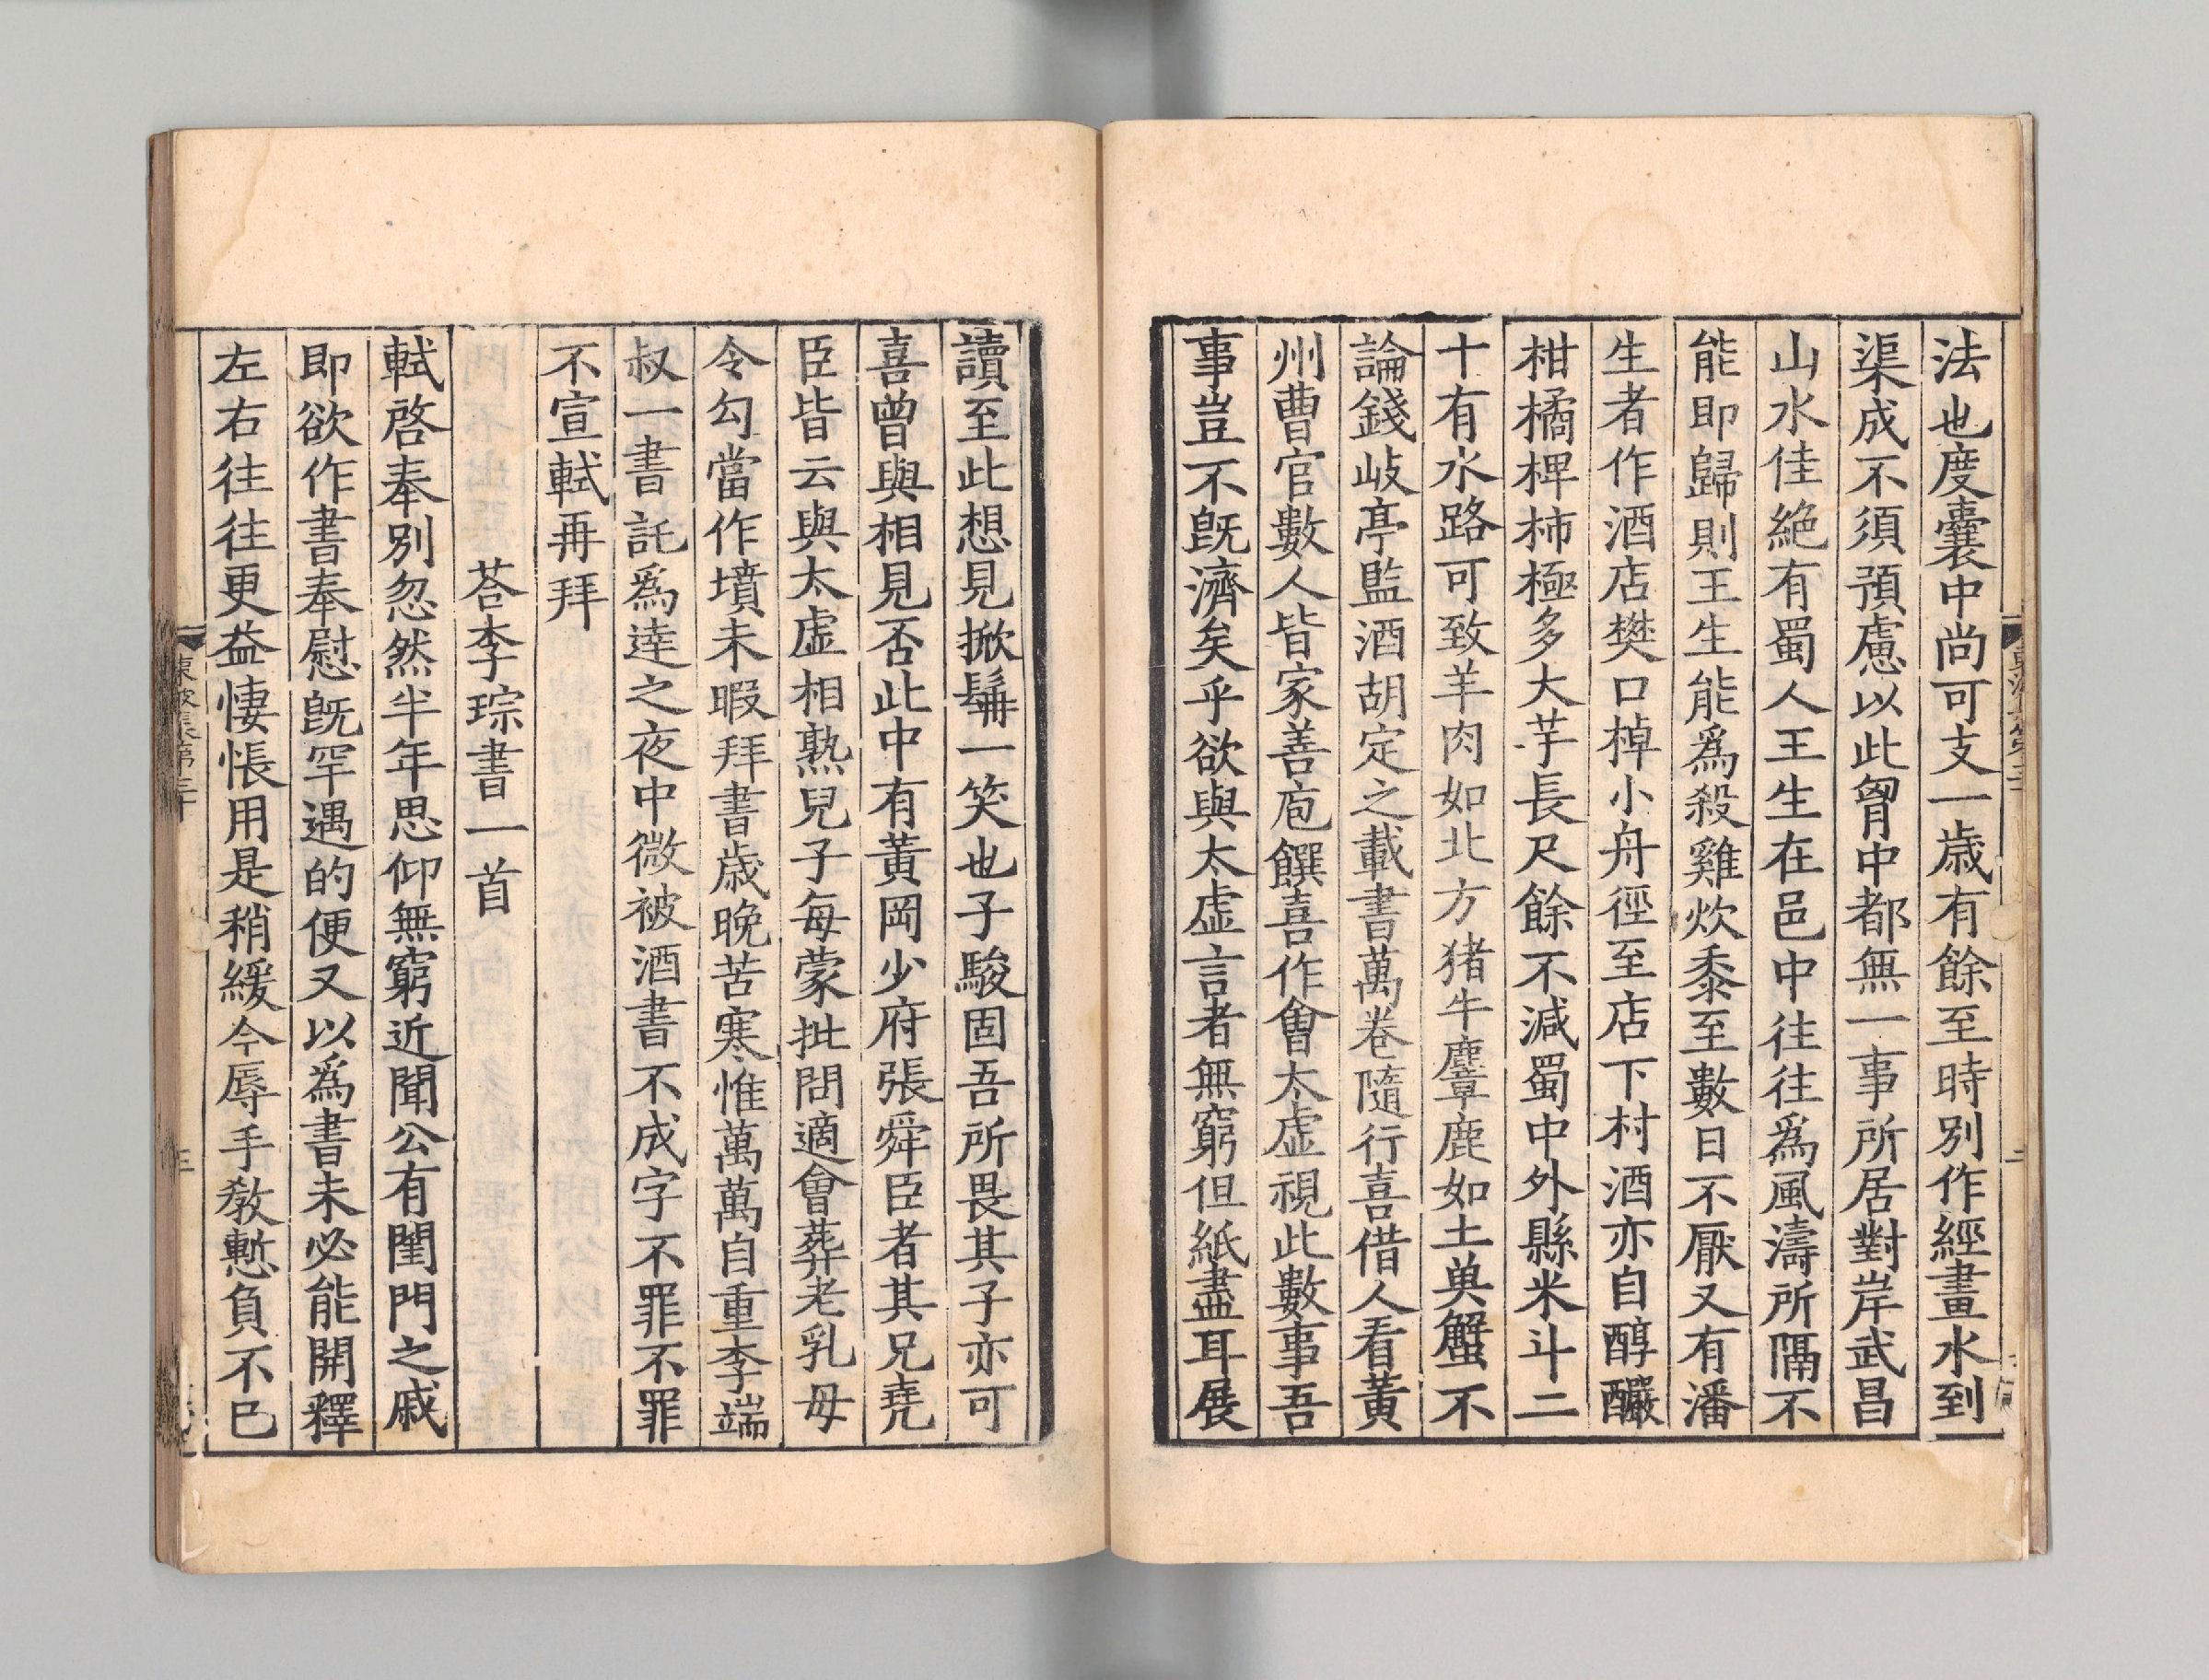 法也度囊中尚可支一歳有餘至時別作經畫水到
渠成不須預慮以此胷中都無一事所居對岸武昌
山水佳絶有蜀人王生在邑中往往爲風濤所隔不
能即歸則王生能爲殺雞炊黍至數日不厭又有潘
生者作酒店樊口棹小舟徑至店下村酒亦自醇釅
柑橘椑柿極多大芋長尺餘不減蜀中外縣米斗二
十有水路可致羊肉如北方猪牛麞鹿如土魚蟹不
論錢岐亭監酒胡定之載書萬卷隨行喜借人看黃
州曹官數人皆家善庖饌喜作會太虛視此數事吾
事豈不旣濟矣乎欲與太虛言者無窮但紙盡耳展
讀至此想見掀髯一笑也子駿固吾所畏其子亦可
喜曾與相見否此中有黃岡少府張舜臣者其兄堯
臣皆云與太虛相熟兒子每蒙批問適會葬老乳母
令勾當作墳未暇拜書歳晚苦寒惟萬萬自重李端
叔一書託爲達之夜中微被酒書不成字不罪不罪
不宣軾再拜
荅李琮書一首
軾啓奉別忽然半年思仰無窮近聞公有閨門之戚
即欲作書奉慰旣罕遇的便又以爲書未必能開釋
左右往往更益悽悵用是稍緩今辱手敎慙負不已
東坡集第三十
三